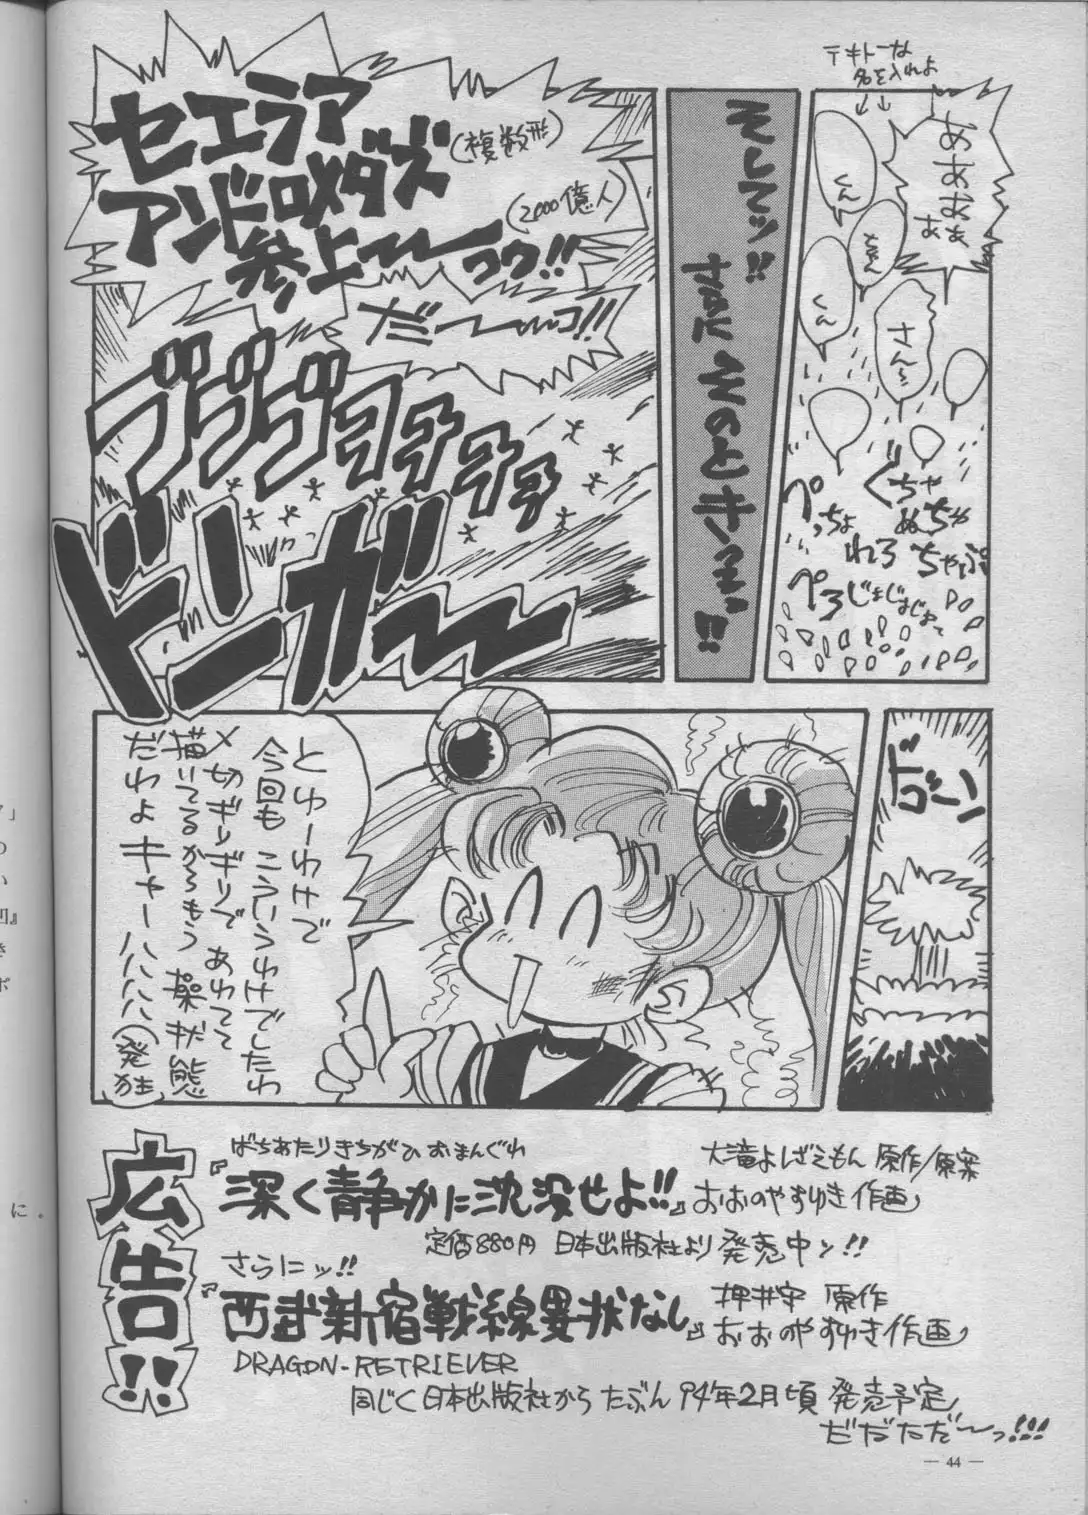 テキトーな
名を入れよ
↓↓
あああああ
くん
ちゃん
くん
さん〜
ぐちゃ
ぬちゃ
ぺっちょ
れろ
ちゃぷ
ぺろ
じまじまじま〜
そしてッ!!
まさにそのときっっ!!
セエラア
アンドロメダズ
(複数形)
(2000億人)
参上〜〜っ!!
だ〜〜っ!!
ブゴゴゴョョョョョ
ドーンガ〜〜
ボゴーン
とゆーわけで
今回もこういうわけでしたわ
〆切ギリギリであわてて
描いてるからもう操状態
だわよキャーハハハハ(発狂)
広告!!
ばちあたりきちがひおまんぐわ
『深く静かに沈没せよ!!』
大滝よしざえもん 原作/原案
おおのやすゆき作画
定価880円 日本出版社より発売中ッ!!
さらにッ!!
『西武新宿戦線異状なし』
押井守 原作
おおのやすゆき作画
DRAGON-RETRIEVER
同じく日本出版社からたぶん94年2月頃発売予定
だだただ〜っ!!!
— 44 —
に。